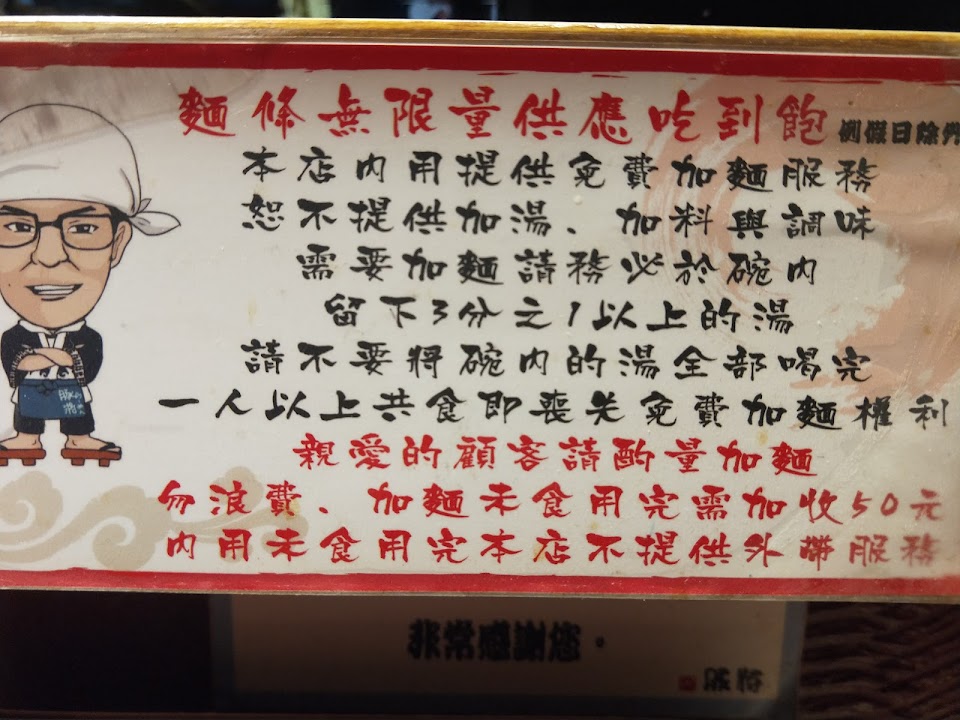 麵條無限量供應吃到飽 例假日除外
本店內用提供免費加麵服務
恕不提供加湯、加料與調味
需要加麵請務必於碗內
留下3分之1以上的湯
請不要將碗內的湯全部喝完
一人以上共食即喪失免費加麵權利
親愛的顧客請酌量加麵
勿浪費、加麵未食用完需加收50元
內用未食用完本店不提供外帶服務
非常感謝您。